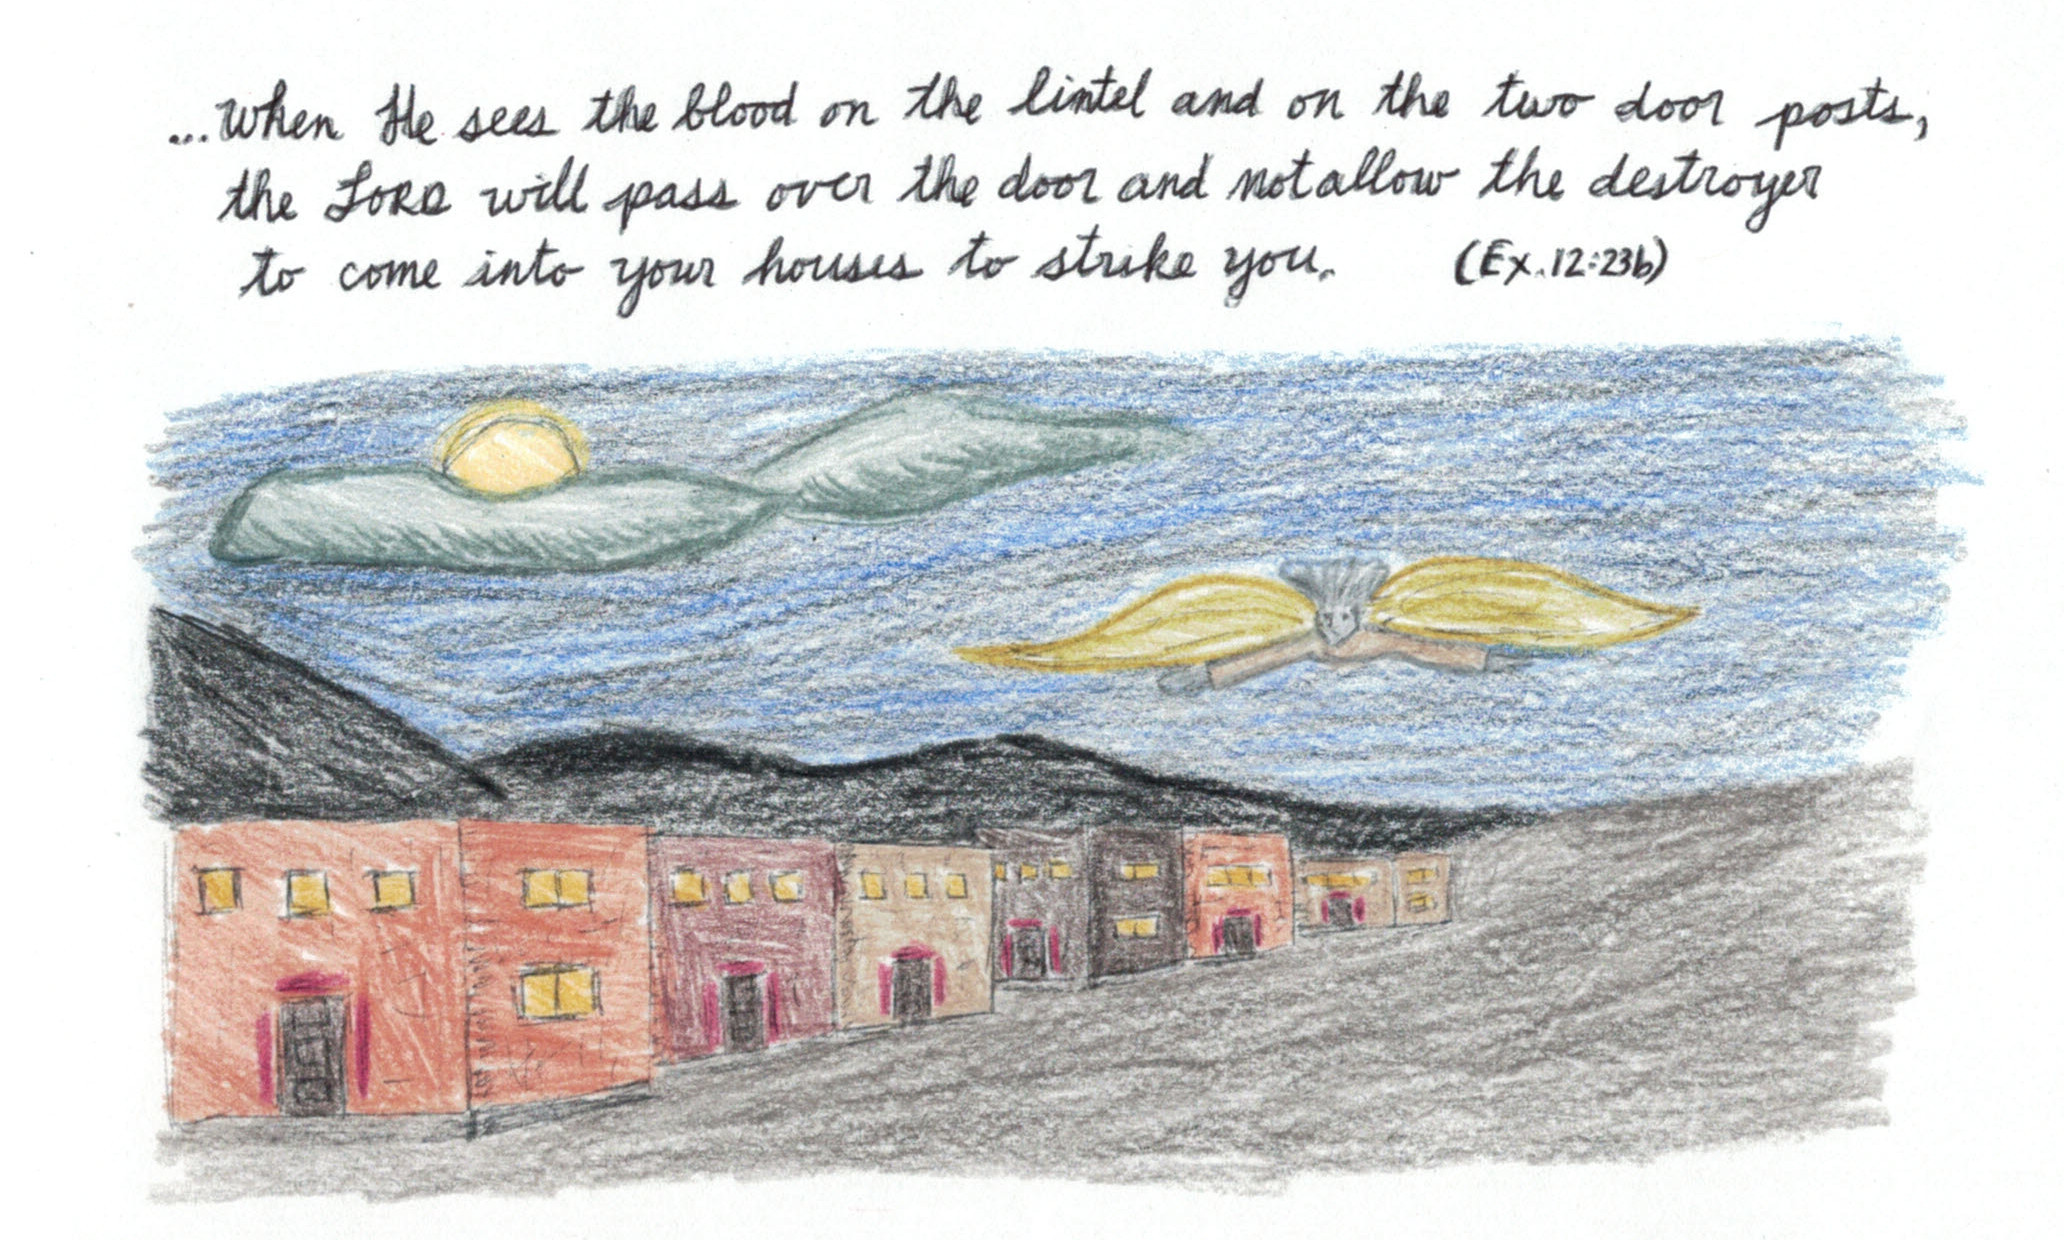 ...when He sees the blood on the lintel and on the two door posts,
the LORD will pass over the door and not allow the destroyer
to come into your houses to strike you. (Ex. 12:23b)